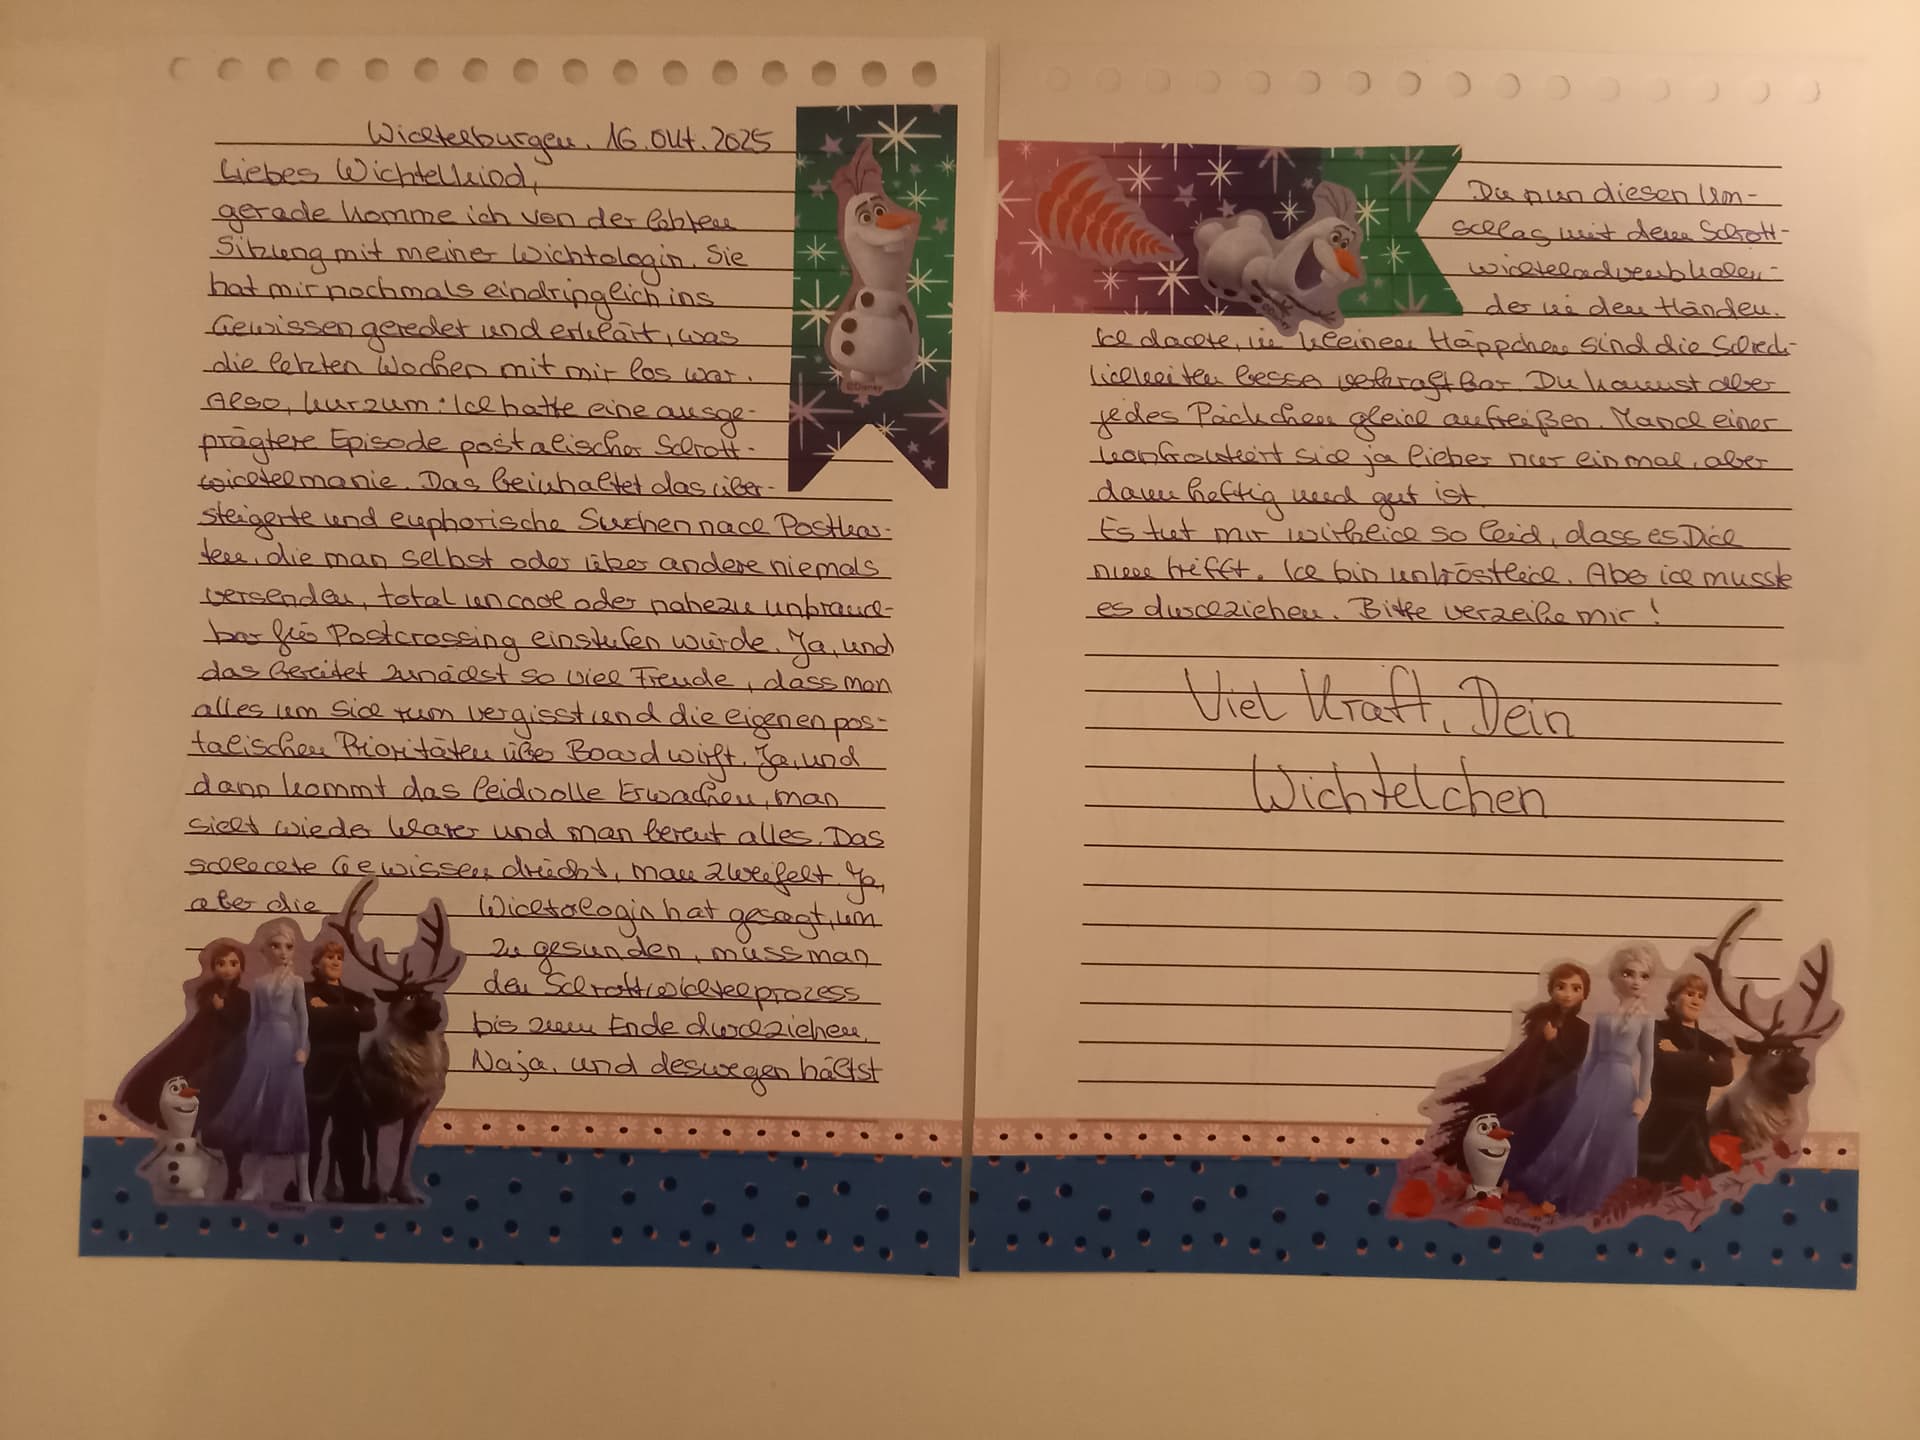 Wichtelburgen, 16. Okt. 2025
Liebes Wichtelkind,
gerade komme ich von der letzten
Sitzung mit meiner Wichtologin. Sie
hat mir nochmals eindringlich ins
Gewissen geredet und erklärt, was
die letzten Wochen mit mir los war.
Also, kurzum: Ich hatte eine ausge-
prägtere Episode postalischer Schrott-
wichtelmanie. Das beinhaltet das über-
steigerte und euphorische Suchen nach Postkar-
ten, die man selbst oder über andere niemals
versenden, total uncool oder nahezu unbrauch-
bar für Postcrossing einstufen würde. Ja, und
das bereitet zunächst so viel Freude, dass man
alles um sich rum vergisst und die eigenen pos-
talischen Prioritäten über Board wirft. Ja, und
dann kommt das leidvolle Erwachen, man
sieht wieder klarer und man bereut alles. Das
schlechte Gewissen drückt, man zweifelt. Ja,
aber die Wichtologin hat gesagt, um
zu gesunden, muss man
den Schrottwichtelprozess
bis zum Ende durchziehen.
Naja, und deswegen hältst
©Disney
©Disney
Du nun diesen Um-
schlag mit dem Schrott-
wichteladventskalen-
der in den Händen.
Ich dachte, in kleinen Häppchen sind die Schreck-
lichkeiten besser verkraftbar. Du kannst aber
jedes Päckchen gleich aufreißen. Manch einer
konfrontiert sich ja lieber nur einmal, aber
dann heftig und gut ist.
Es tut mir wirklich so leid, dass es Dich
nun trifft. Ich bin untröstlich. Aber ich musste
es durchziehen. Bitte verzeihe mir!
Viel Kraft, Dein
Wichtelchen
©Disney
©Disney